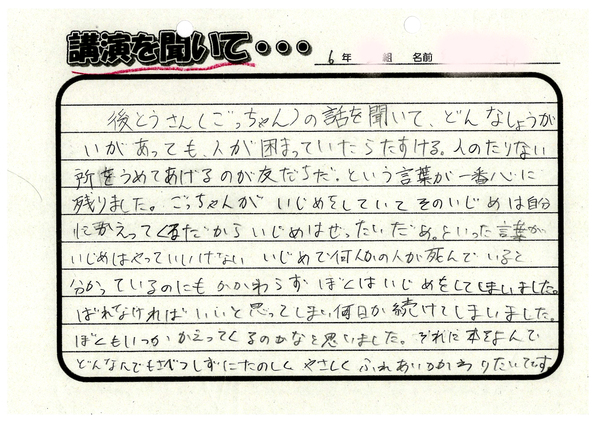 講演を聞いて・・・
6年 組 名前
後とうさん(ごっちゃん)の話を聞いて、どんなしょうが
いがあっても、人が困まっていたらたすける。人のたりない
所をうめてあげるのが友だちだ。という言葉が一番心に
残りました。ごっちゃんが いじめをしていて そのいじめは自分
にかえってくるだからいじめはぜったいだめ。といった言葉が
いじめはやっていいいけない いじめで何人かの人が死んでいると
分かっているのにもかかわらずぼくはいじめをしてしまいました。
ばれなければいいと思ってしまい何日か続けてしまいました。
ぼくもいつかかえってくるのかなと思いました。それに本をよんで
どんなんでもさべつしずにたのしく やさしく ふれあいかかわりたいです。